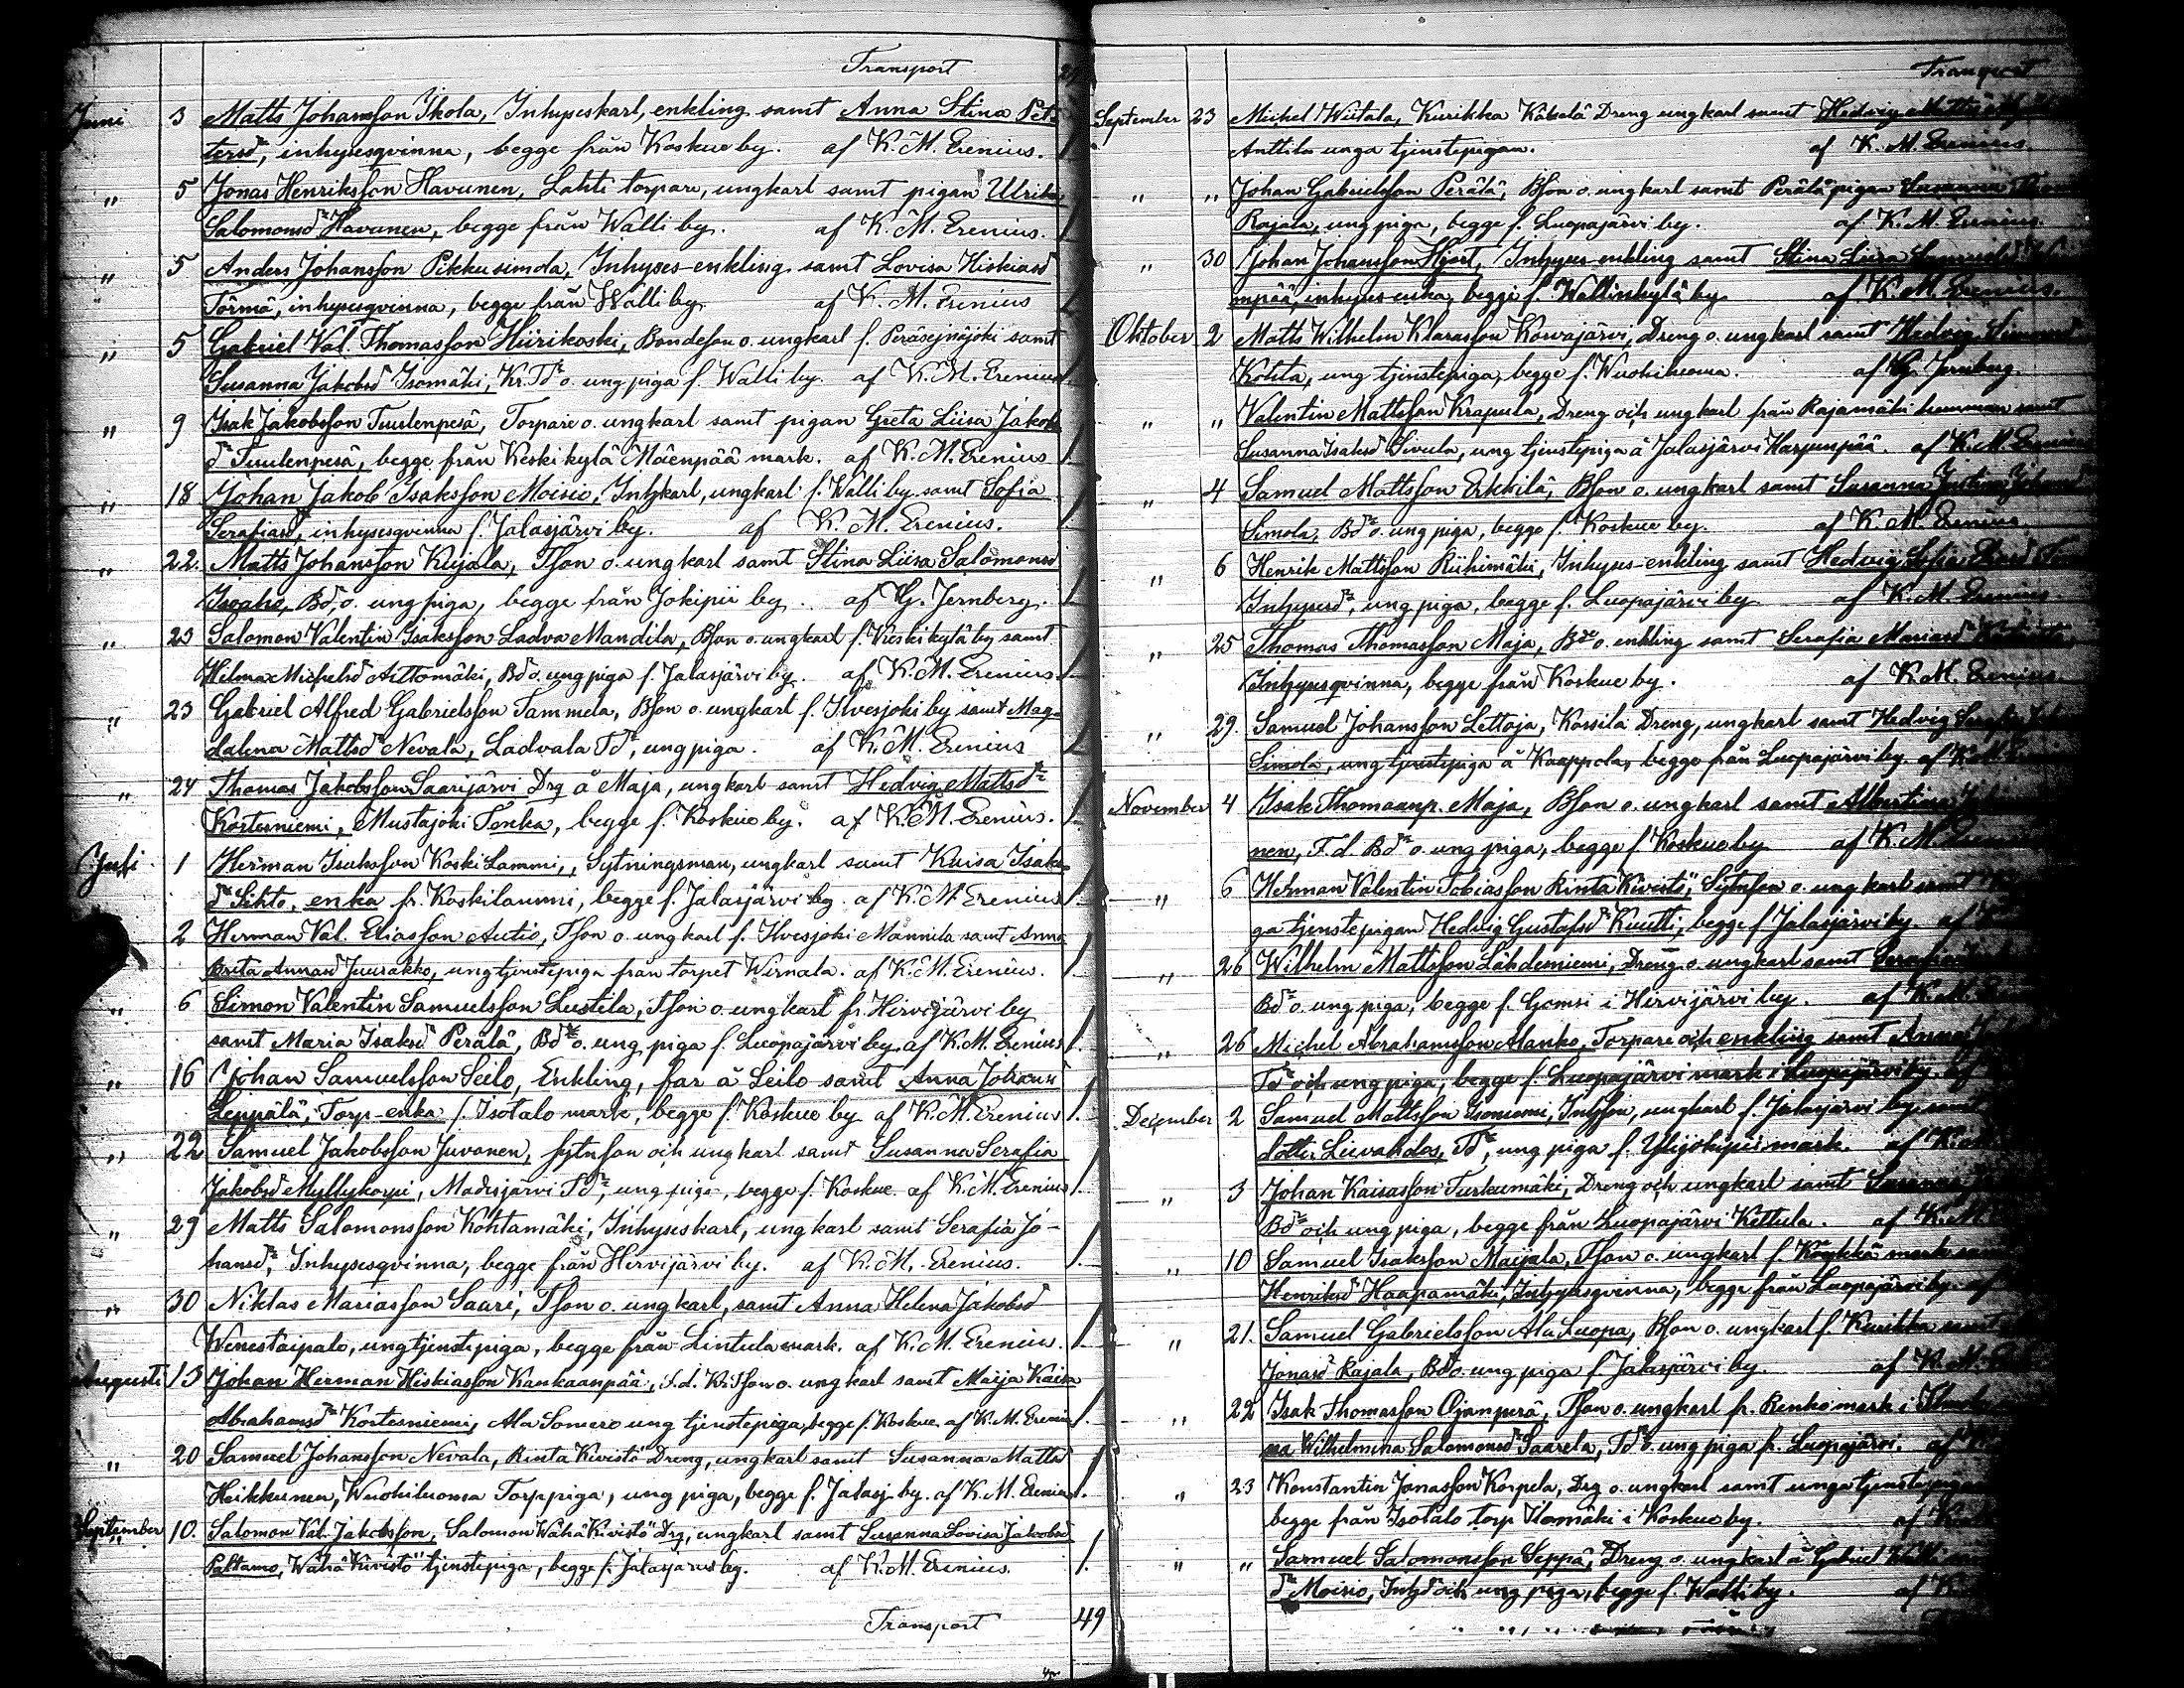 Transport
Juni 3 Matts Johansson Ikola, Inhyseskarl, enkling samt Anna Stina Pet-
tersdr, inhysesqvinna, begge från Koskue by. af K. M. Erenius. 1.
" 5 Jonas Henriksson Havunen, Lahti torpare, ungkarl samt pigan Ulrika
Salomonsdr Havunen, begge från Walli by. af K. M. Erenius. 1.
" 5 Anders Johansson Pikkusimola, Inhyses-enkling samt Lovisa Hiskiasd
Törmä, inhysesqvinna, begge från Walli by. af K. M. Erenius 1.
" 5 Gabriel Val. Thomasson Hiirikoski, Bondeson o. ungkarl f. Peräseinäjoki samt
Susanna Jakobsd Isomäki, Kr. Tdr o. ung piga f. Walli by. af K. M. Erenius 1.
" 9 Isak Jakobsson Tuulenpesä, Torpare o. ungkarl samt pigan Greta Liisa Jakobs
dr Tuulenpesä, begge från Keskikylä Mäenpää mark. af K. M. Erenius 1.
" 18 Johan Jakob Isaksson Moisio, Inhkarl, ungkarl f. Walli by samt Sofia
Serafiasd, inhysesqvinna f. Jalasjärvi by. af K. M. Erenius. 1.
" 22. Matts Johansson Kujala, Tson o. ungkarl samt Stina Liisa Salomonsd
Isoaho, Bdr o. ung piga, begge från Jokipii by. af G. Jernberg. 1.
" 23 Salomon Valentin Isaksson Ladva Mandila, Bson o. ungkarl f. Keskikylä by samt
Hilma Michelsd Aittomäki, Bd o. ung piga f. Jalasjärvi by. af K. M. Erenius. 1.
" 23 Gabriel Alfred Gabrielsson Tammela, Bson o. ungkarl f. Ilvesjoki by samt Mag-
dalena Mattsdr Nevala, Ladvala Tdr, ung piga. af K. M. Erenius 1.
" 24 Thomas Jakobsson Saarijärvi Drg å Maja, ungkarl samt Hedvig Mattsdr
Kortesniemi, Mustajoki Tenka, begge f. Koskue by. af K. M. Erenius. 1.
Juli 1 Herman Isaksson Koski Lammi, Sytningsman, ungkarl samt Kaisa Isaks
dr Sihto, enka fr. Koskilammi, begge f. Jalasjärvi by. af K. M. Erenius 1.
2 Herman Val. Eliasson Autio, Tson o. ungkarl f. Ilvesjoki Mannila samt Anna
Brita Annasd Juusakko, ung tjenstepiga från torpet Wirnala. af K. M. Erenius. 1.
" 6 Simon Valentin Samuelsson Lustila, Tson o. ungkarl fr. Hirvijärvi by
samt Maria Isaksd Perälä, Bdr o. ung piga f. Luopajärvi by af K. M. Erenius 1.
" 16 Johan Samuelsson Seilo, Enkling, far å Seilo samt Anna Johansd
Leppälä, Torp-enka f. Isotalo mark, begge f. Koskue by af K. M. Erenius 1.
" 22 Samuel Jakobsson Juvonen, sytnson och ungkarl samt Susanna Serafia
Jakobsd Myllykorpi, Madesjärvi Tdr, ung piga, begge f. Koskue. af K. M. Erenius 1.
" 29 Matts Salomonsson Kohtamäki, Inhyseskarl, ungkarl samt Serafia Jo-
hansdr, Inhysesqvinna, begge från Hirvijärvi by. af K. M. Erenius. 1.
" 30 Niklas Mariasson Saari, Tson o. ungkarl, samt Anna Helena Jakobsd
Wenestaipale, ung tjenstepiga, begge från Lintula mark. af K. M. Erenius. 1.
Augusti 13 Johan Herman Hiskiasson Kankaanpää, f.d. Kr.Tson o. ungkarl samt Maija Kaisa
Abrahamsdr Kortesniemi, Ala Somero ung tjenstepiga, begge f. Koskue. af K. M. Erenius 1.
" 20 Samuel Johansson Nevala, Rinta Kivistö Dreng, ungkarl samt Susanna Mattsd
Heikkinen, Wuohiluoma Torppiga, ung piga, begge f. Jalasj. by. af K. M. Erenius 1.
September 10. Salomon Val. Jakobsson, Salomon Wähä Kivistö Drg, ungkarl samt Susanna Lovisa Jakobsd
Paltamo, Wähä Kivistö tjenstepiga, begge f. Jalasjärvi by. af K. M. Erenius. 1.
Transport 49
Transport
September 23 Michel Wiitala, Kurikka Käkelä Dreng ungkarl samt Hedvig
Anttila unga tjenstepigan. af K. M. Erenius.
" " Johan Gabrielsson Perälä, Bson o. ungkarl samt Perälä pigan Susanna
Rajala, ung piga, begge f. Luopajärvi by. af K. M. Erenius.
" 30 Johan Johansson Hjort, Inhyses-enkling samt Stina Liisa
mpää, inhyses enka, begge f. Wallinkylä by af K. M. Erenius.
Oktober 2 Matts Wilhelm Klarasson Kowajärvi, Dreng o. ungkarl samt Hedvig
Kohta, ung tjenstepiga, begge f. Wuohiluoma. af G. Jernberg.
" " Valentin Mattsson Krapula, Dreng och ungkarl från Rajamäki hemman samt
Susanna Isaksd Sivula, ung tjenstepiga å Jalasjärvi Harjunpää. af K. M. Erenius
" 4 Samuel Mattsson Erkkilä, Bson o. ungkarl samt Susanna Justina
Simola, Bdr o. ung piga, begge f. Koskue by. af K. M. Erenius.
" 6 Henrik Mattsson Riihimäki, Inhyses-enkling samt Hedvig Sofia
Inhysesdr, ung piga, begge f. Luopajärvi by. af K. M. Erenius.
" 25 Thomas Thomasson Maja, Bde o. enkling samt Serafia Mariasd
Inhysesqvinna, begge från Koskue by. af K. M. Erenius.
" 29. Samuel Johansson Lettoja, Kassila Dreng, ungkarl samt Hedvig
Simola, ung tjenstepiga å Kaappola, begge från Luopajärvi by. af K. M.
November 4 Isak Thomasnp. Maja, Bson o. ungkarl samt Albertina
nen, F.d. Bdr o. ung piga, begge f. Koskue by af K. M.
" 6 Herman Valentin Tobiasson Rinta Kivistö, Sytnson o. ungkarl samt
ga tjenstepigan Hedvig Gustafsd Kuutti, begge f. Jalasjärvi by af
" 26 Wilhelm Mattsson Lähdeniemi, Dreng o. ungkarl samt Serafia
Bdr o. ung piga, begge f. Gomsi i Hirvijärvi by. af K. M.
" 26 Michel Abrahamsson Alanko, Torpare och enkling samt Anna
Tdr och ung piga, begge f. Luopajärvi mark i Luopajärvi by. af
December 2 Samuel Mattsson Isoniemi, Inhson, ungkarl f. Jalasjärvi by samt
dotter Liivakdos, Tdr, ung piga f. Ylijokipii mark. af K. M.
" 3 Johan Kaisasson Turkumäki, Dreng och ungkarl samt Susanna
Bdr och ung piga, begge från Luopajärvi Kettula. af K. M.
" 10 Samuel Isaksson Maijala, Tson o. ungkarl f. Köykkä mark samt
Henriksd Haapamäki, Inhysesqvinna, begge från Luopajärvi by. af
" 21. Samuel Gabrielsson Ala Luopa, Bson o. ungkarl f. Kurikka samt
Jonasd Rajala, Bd o. ung piga f. Jalasjärvi by. af K. M.
" 22 Isak Thomasson Ojanperä, Tson o. ungkarl fr. Renko mark i
na Wilhelmina Salomonsdr Saarela, Tdr o. ung piga fr. Luopajärvi. af
" 23 Konstantin Jonasson Korpela, Drg o. ungkarl samt unga tjenstepigan
begge från Isotalo torp Ilomäki i Koskue by. af
" " Samuel Salomonsson Seppä, Dreng o. ungkarl å Gabriel
dr Moisio, Inhd och ung piga, begge f. Walli by. af K.